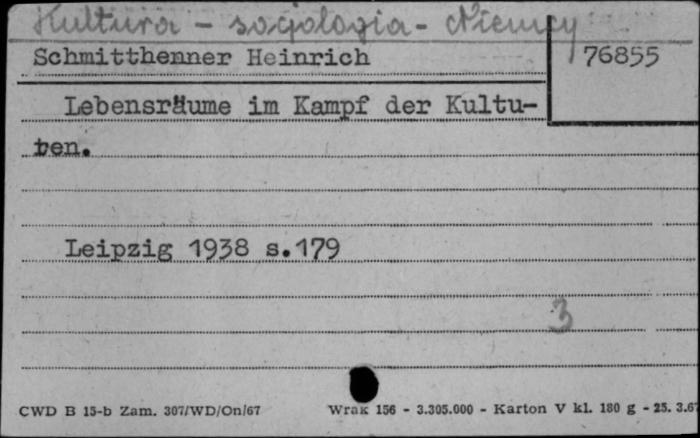 Kultura - socjologia - Niemcy
Schmitthenner Heinrich
76855
Lebensräume im Kampf der Kultu-
ren.
Leipzig 1938 s.179
3
CWD B 15-b Zam. 307/WD/On/67 Wrak 156 - 3.305.000 - Karton V kl. 180 g - 25. 3.67